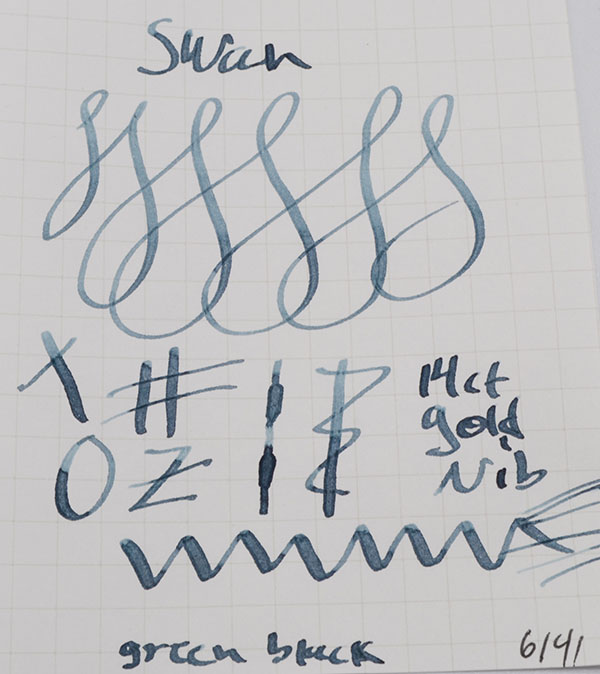 Swan
X # 
14ct
gold
O Z
Nib
green black
6/41